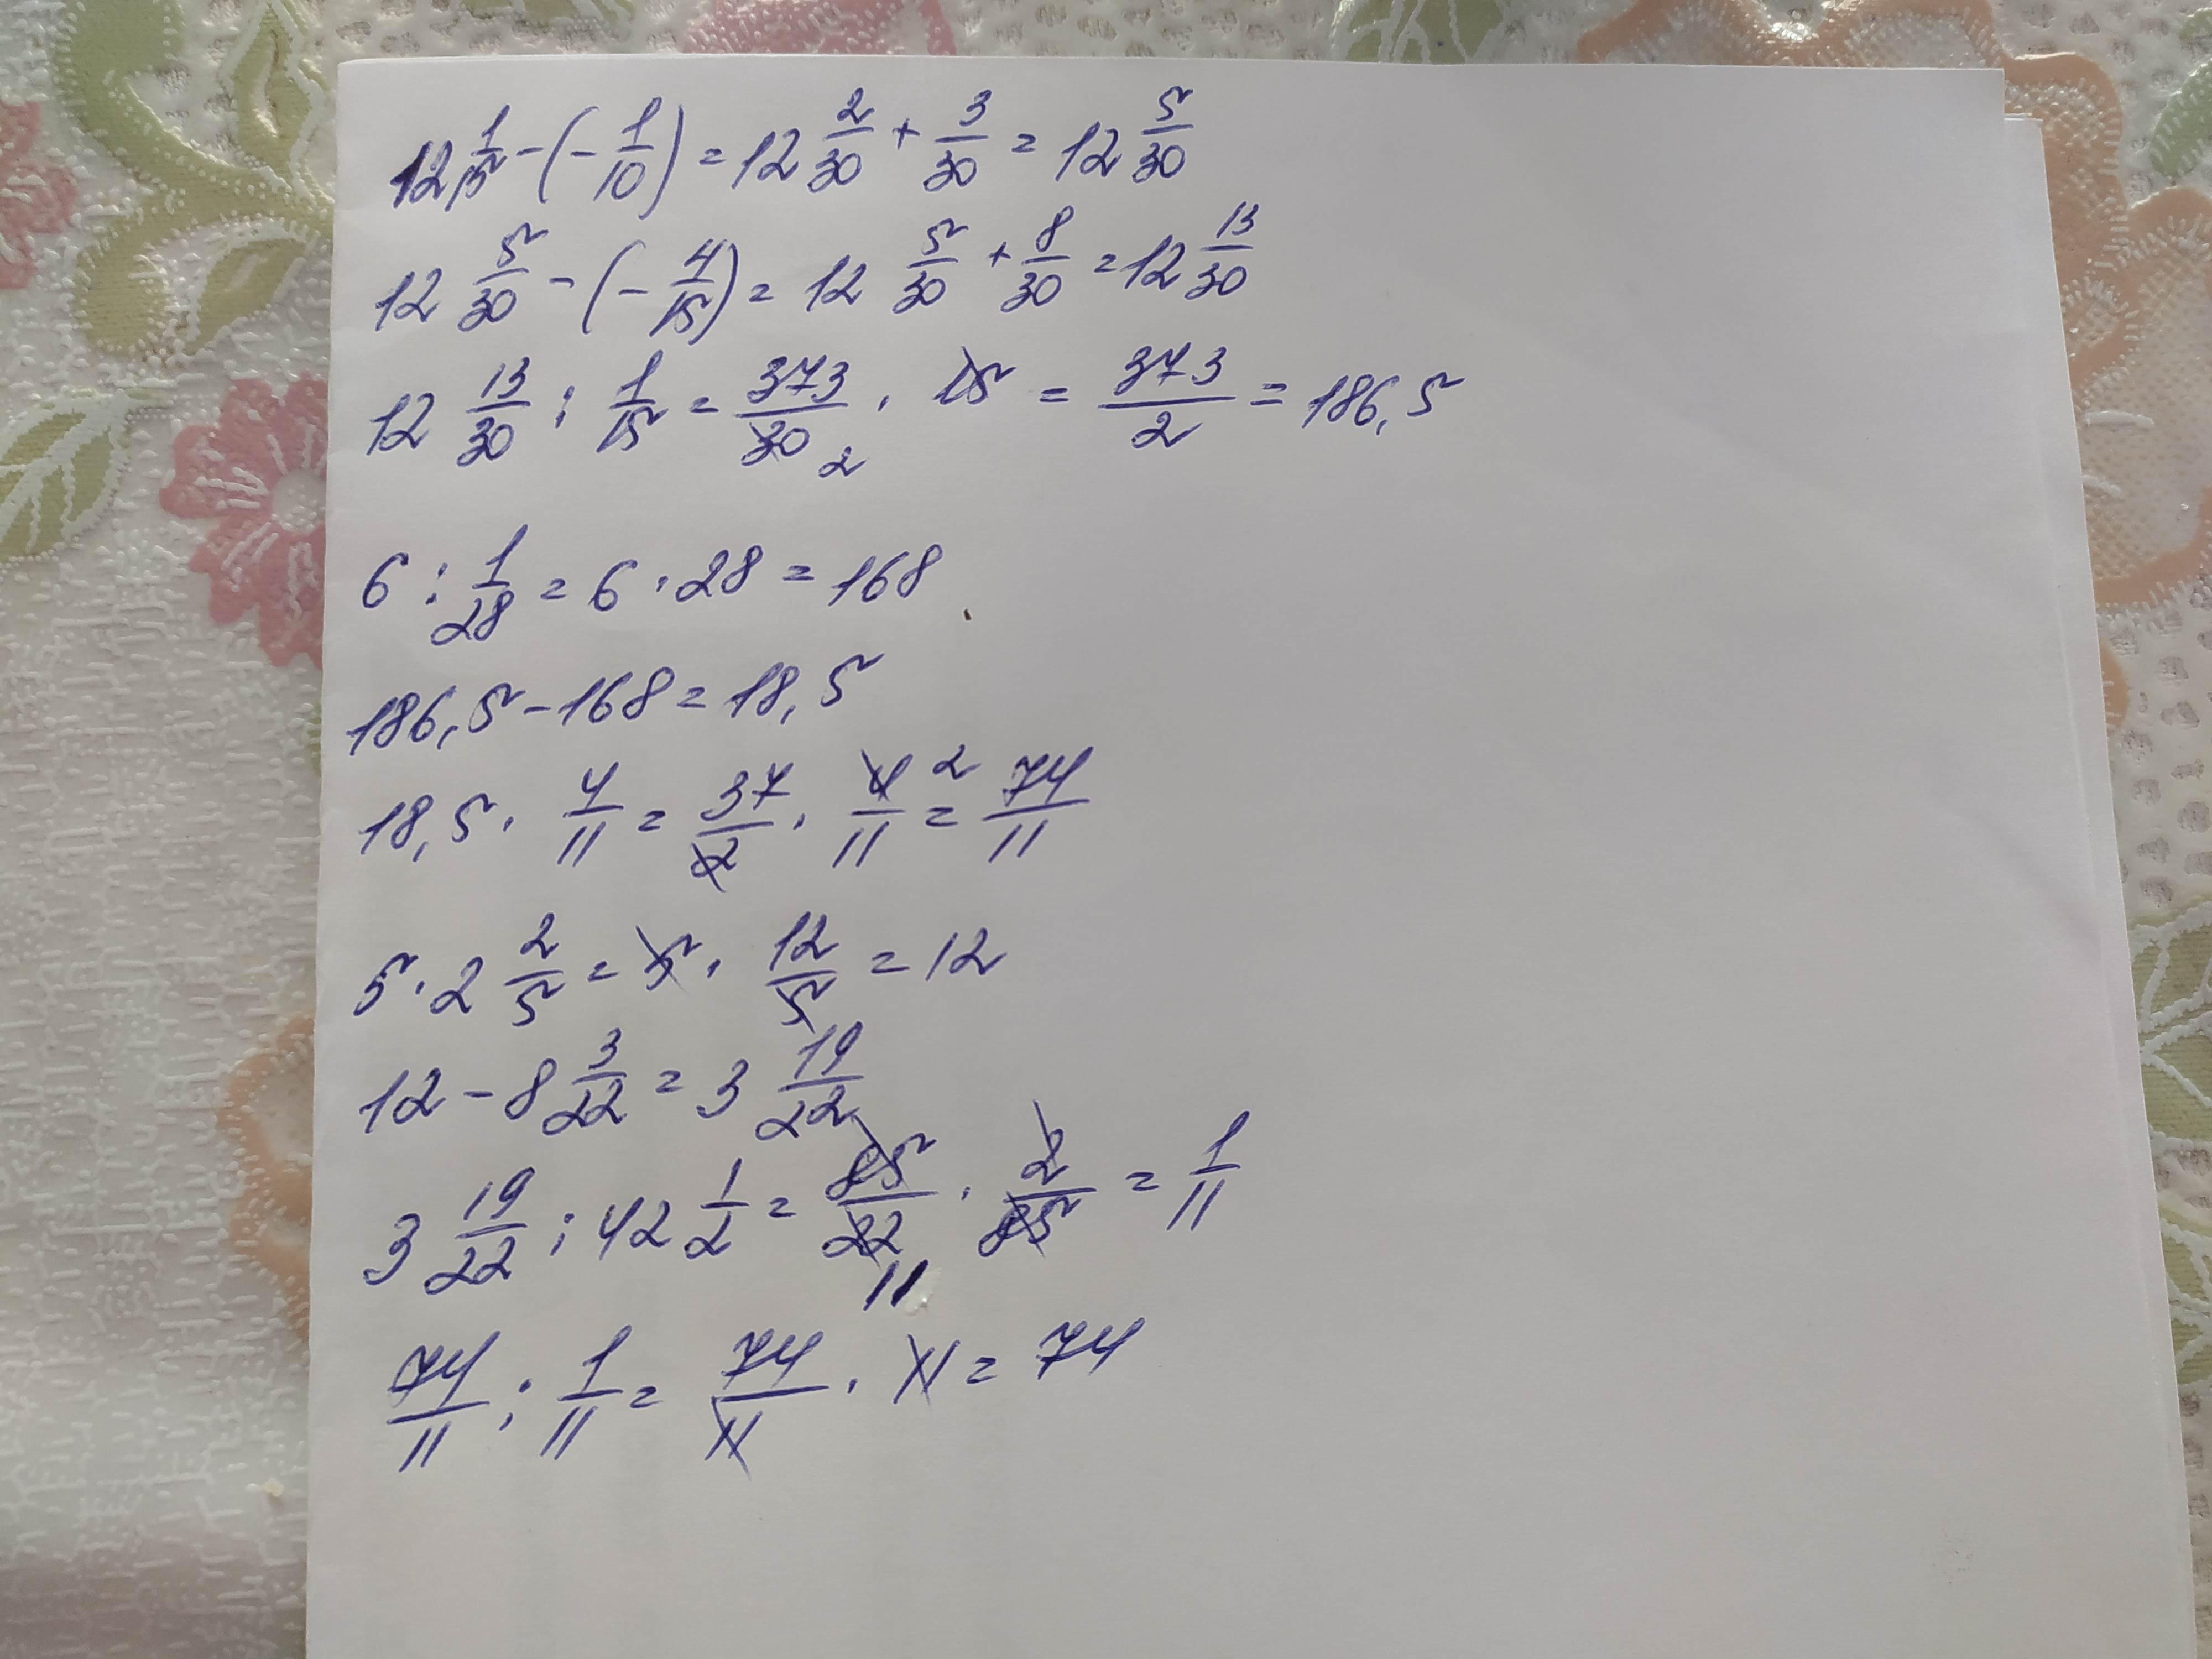 12 1/15 - (- 1/10) = 12 2/30 + 3/30 = 12 5/30
12 5/30 - (- 4/15) = 12 5/30 + 8/30 = 12 13/30
12 13/30 : 1/15 = 373/30 2 · 15 = 373/2 = 186,5
6 : 1/28 = 6 · 28 = 168
186,5 - 168 = 18,5
18,5 · 4/11 = 37/2 · 4 2/11 = 74/11
5 · 2 2/5 = 5 · 12/5 = 12
12 - 8 3/22 = 3 19/22
3 19/22 : 42 1/2 = 85/22 11 · 2/85 = 1/11
74/11 : 1/11 = 74/11 · 11 = 74